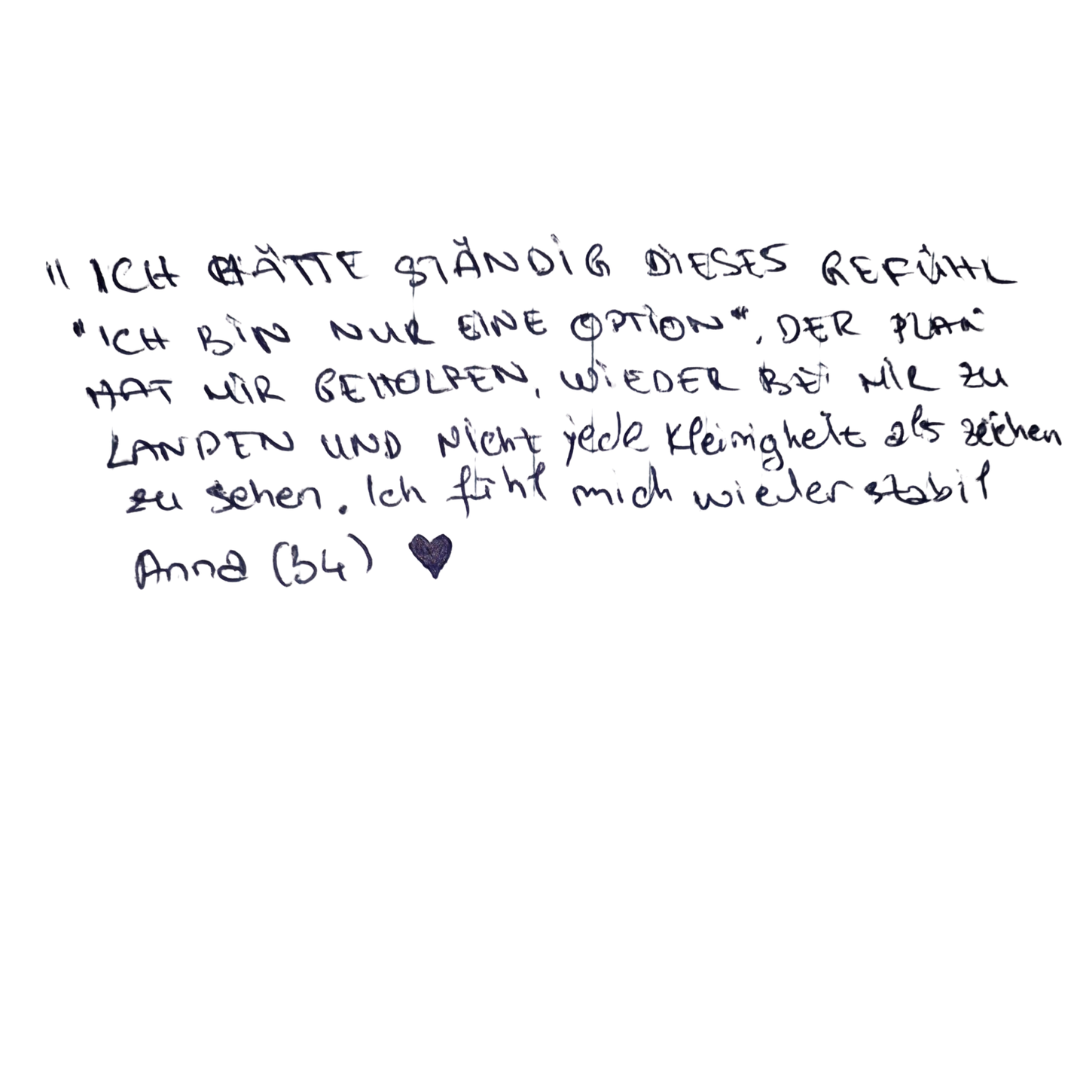 "ICH HÄTTE STÄNDIG DIESES GEFÜHL
"ICH BIN NUR EINE OPTION", DER PLAN
HAT MIR GEHOLFEN, WIEDER BEI MIR ZU
LANDEN UND Nicht jede Kleinigkeit als zeichen
zu sehen. Ich fühl mich wieder stabil
Anna (34) ♥